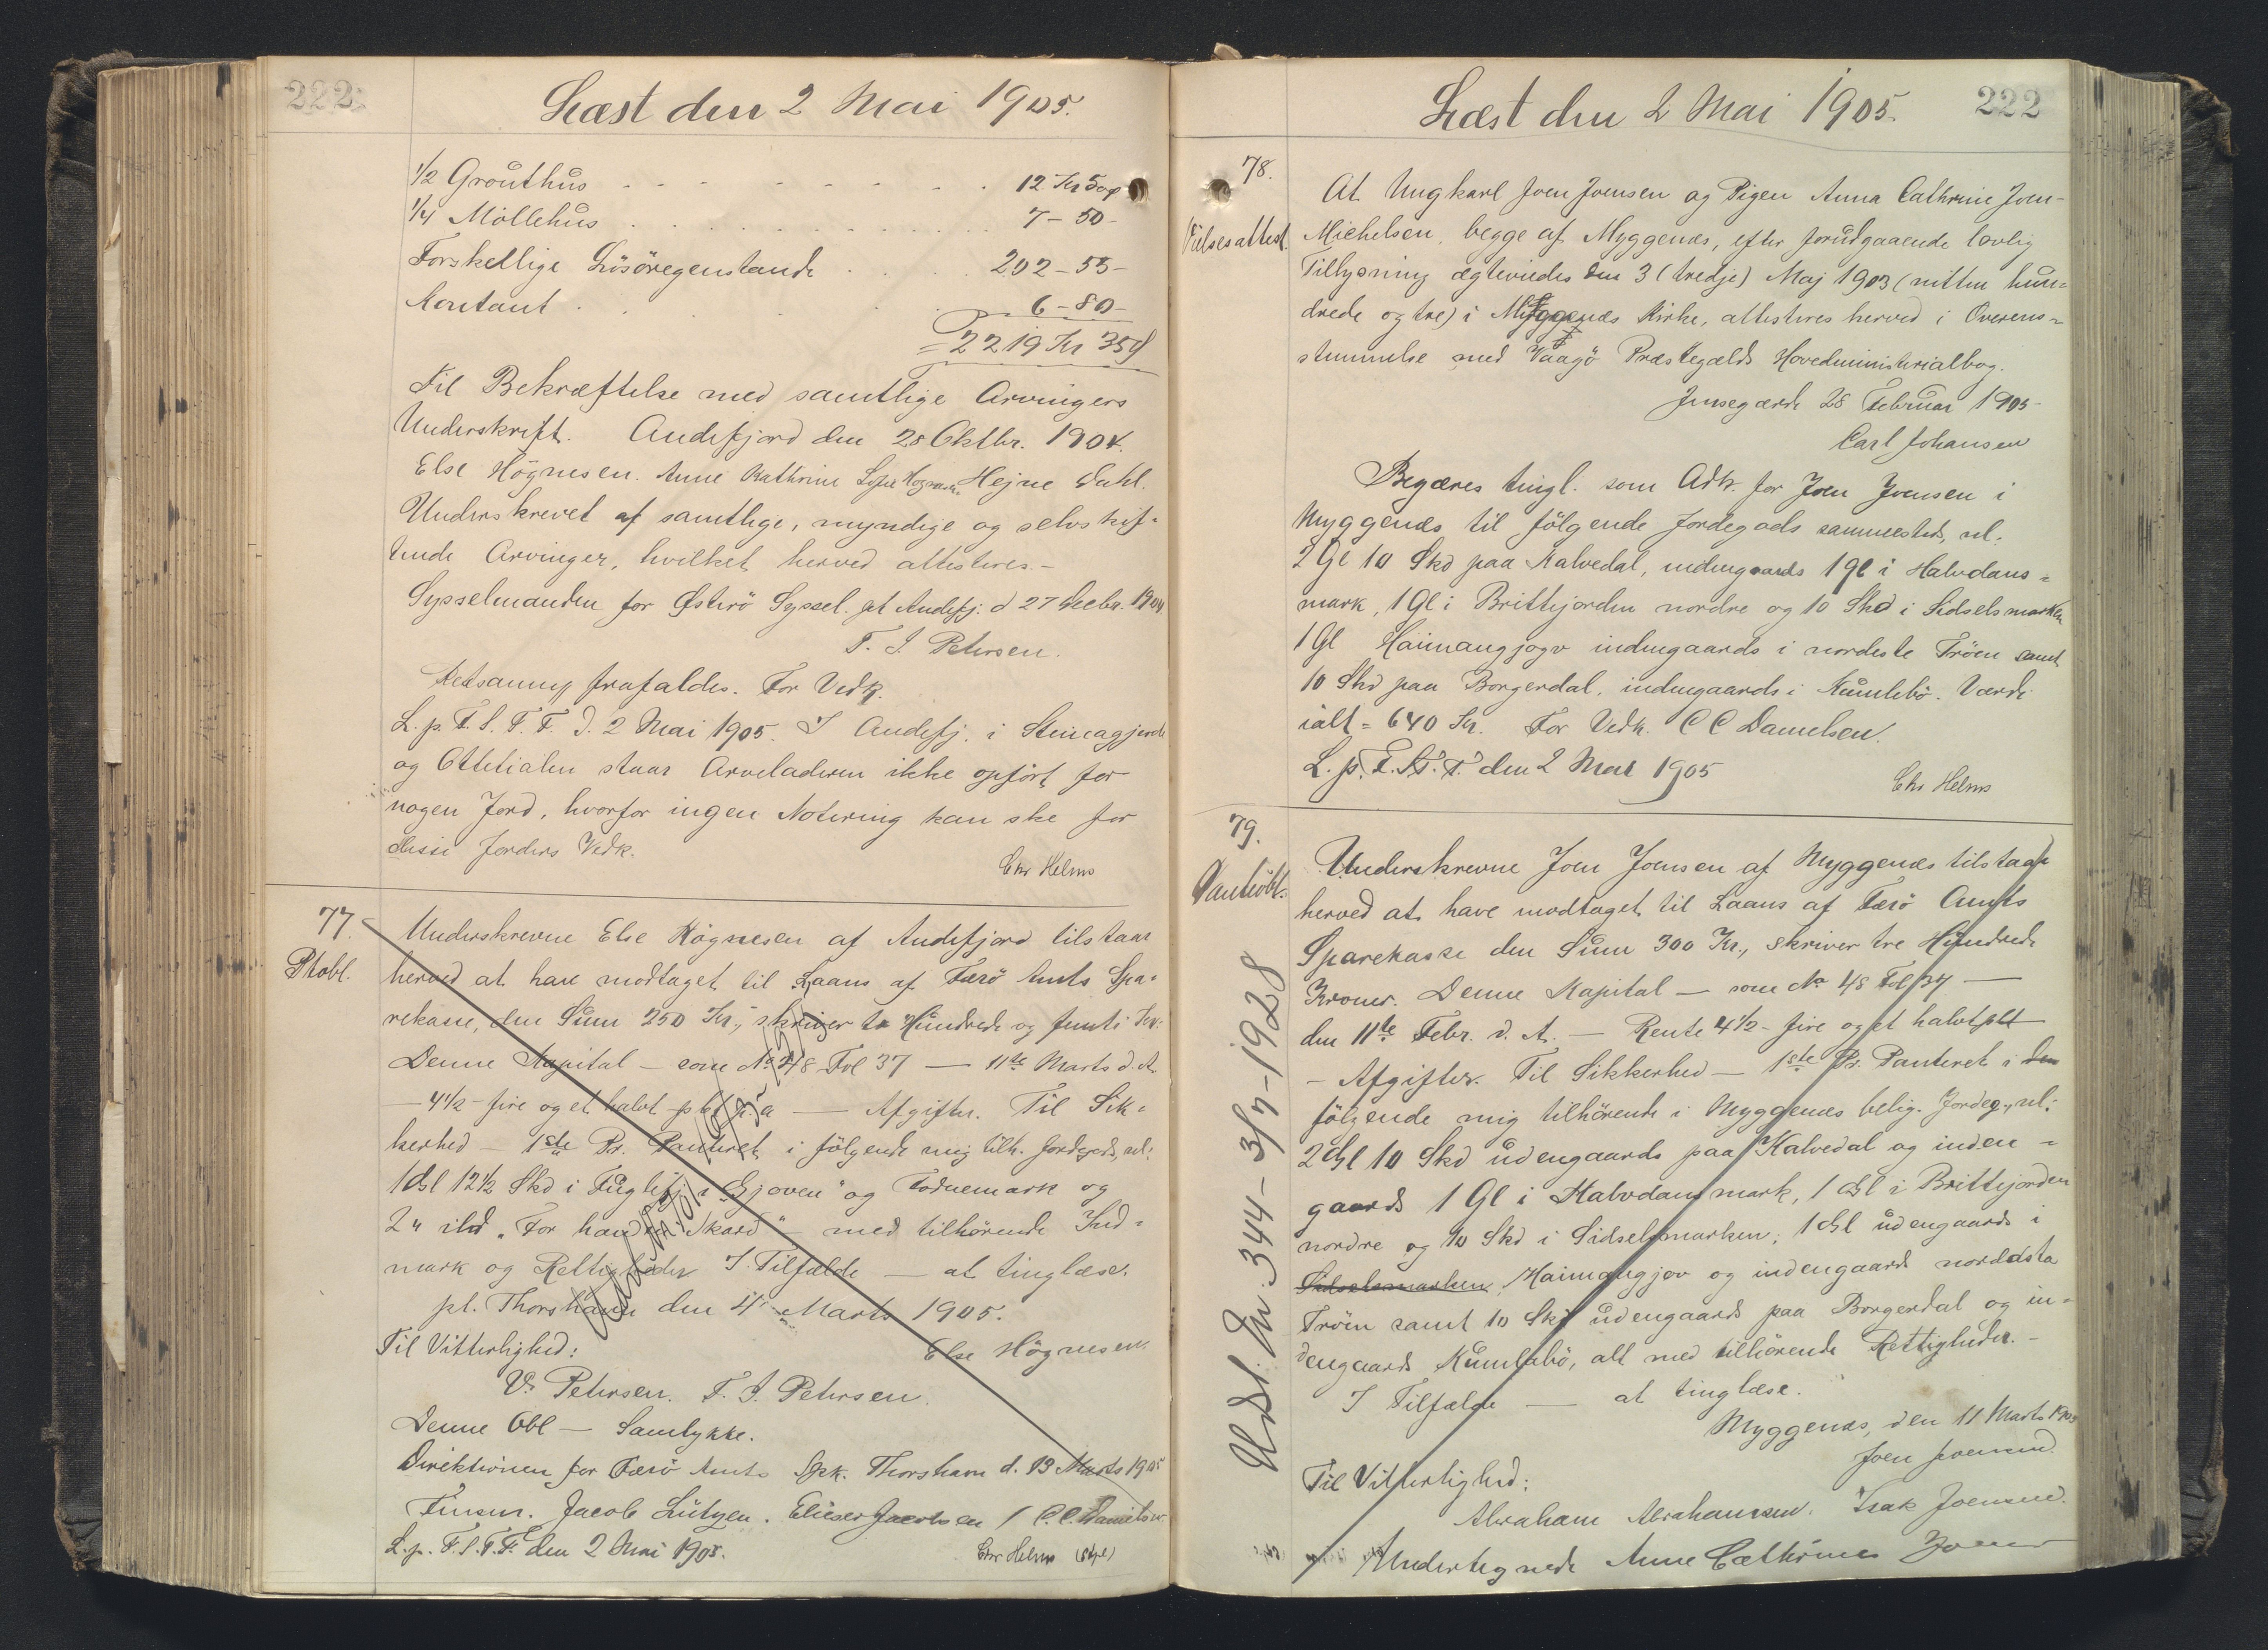 222
Læst den 2 Mai 1905.
1/2 Grouthus 12 Kr 50 ø
1/4 Möllehus 7-50-
Forskellige Lösöregenstande 202-55-
Kontant 6-80-
= 2219 Kr 35 Ø
Til Bekræftelse med samtlige Arvingers
Underskrift. Andefjord den 28 Oktbr. 1904.
Else Högnesen. Anne Kathrine Sofie Hognesen. Hejne Dahl.
Underskrevet af samtlige, myndige og selvskif-
tende Arvinger, hvilket herved attesteres.-
Sysselmanden for Østerö Syssel. pt Andefj. d 27 Decbr. 1904
T. J. Petersen.
Retsanm frafaldes. For Vedk.
L. p. F. S. T. F. D. 2 Mai 1905. I Andefj. i Steinagjerde
og Ottetialen staar Arveladeren ikke opfört for
nogen Jord, hvorfor ingen Notering kan ske for
disse Jorders Vedk.
Chr Helms
77.
Ptobl.
Underskrevne Else Högnesen af Andefjord tilstaar
herved at have modtaget til Laans af Færö Amts Spa-
rekasse, den Sum 250 Kr., skriver to Hundrede og femti Kr.
Denne Kapital — som No 48 Fol 37 — 11te Marts d. A.
— 4 1/2 - fire og et halvt pCt p. a — Afgifter. Til Sik-
kerhed — 1ste Pr. Panteret i fölgende mig tilh. Jordegods, nl:
1 Gl 12 1/2 Skd i Fuglefj. i "Gjoven" og Todnemark og
2 " ibd "For handan Skard" — med tilhörende Ind-
mark og Rettigheder. I Tilfælde — at tinglæse.
pt. Thorshavn den 4 Marts 1905.
Til Vitterlighed:
Else Högnesen.
V. Petersen. T. J. Petersen.
Denne Obl — Samtykke.
Direktionen for Færö Amts Spk. Thorshavn d. 13 Marts 1905
Finsen. Jacob Lützen. Elieser Jacobsen / C.C. Danielsen.
L. p. F. S. T. F. den 2 Mai 1905.
Chr Helms
Læst den 2 Mai 1905.
222
78.
Vielsesattest.
At Ungkarl Joen Joensen og Pigen Anna Cathrine Joen-
Michelsen, begge af Myggenæs, efter forudgaaende lovlig
Tillysning ægteviedes den 3 (tredje) Maj 1903 (nitten hun-
drede og tre) i Myggenæs Kirke, attesteres herved i Overens-
stemmelse med Vaagö Præstegælds Hovedministerialbog.
Jensegærde 28 Februar 1905-
Carl Johansen
Begæres tingl. som Adk. for Joen Joensen i
Myggenæs til fölgende Jordegods sammesteds, nl.
2 Gl 10 Skd paa Kalvedal, indengaards 1 Gl i Halvdans-
mark, 1 Gl i Brittejorden nordre og 10 Skd i Sidselsmarken
1 Gl Haimangjogv indengaards i nordeste Tröen samt
10 Skd paa Borgerdal, indengaards i Kumlebö. Værdi
ialt = 640 Kr. For Vedk. C C Danielsen.
L. p. F. S. T. F. den 2 Mai 1905
Chr Helms
79.
Panteobl.
Underskrevne Joen Joensen af Myggenæs tilstaar
herved at have modtaget til Laans af Færö Amts
Sparekasse den Sum 300 Kr., skriver tre Hundrede
Kroner. Denne Kapital — som No 48 Fol 37 —
den 11te Febr. d. A. — Rente 4 1/2 - fire og et halvt pCt
- Afgifter. Til Sikkerhed — 1ste Pr. Panteret i den
fölgende mig tilhörende i Myggenæs belig. Jordeg., nl:
2 Gl 10 Skd udengaards paa Kalvedal og inden-
gaards 1 Gl i Halvdansmark, 1 Gl i Brittejorden
nordre og 10 Skd i Sidselsmarken; 1 Gl udengaards i
Sidselsmarken Haimangjov og indengaards nordasta
Tröen samt 10 Skd udengaards paa Borgerdal og in-
dengaards Kumlebö, alt med tilhörende Rettigheder.-
I Tilfælde — at tinglæse.
Myggenæs, den 11 Marts 1905
Joen Joensen.
Til Vitterlighed:
Abraham Abrahamsen. Isak Joensen.
Undertegnede Anne Cathrine Joens
Udsl. No. 344-3/7-1928